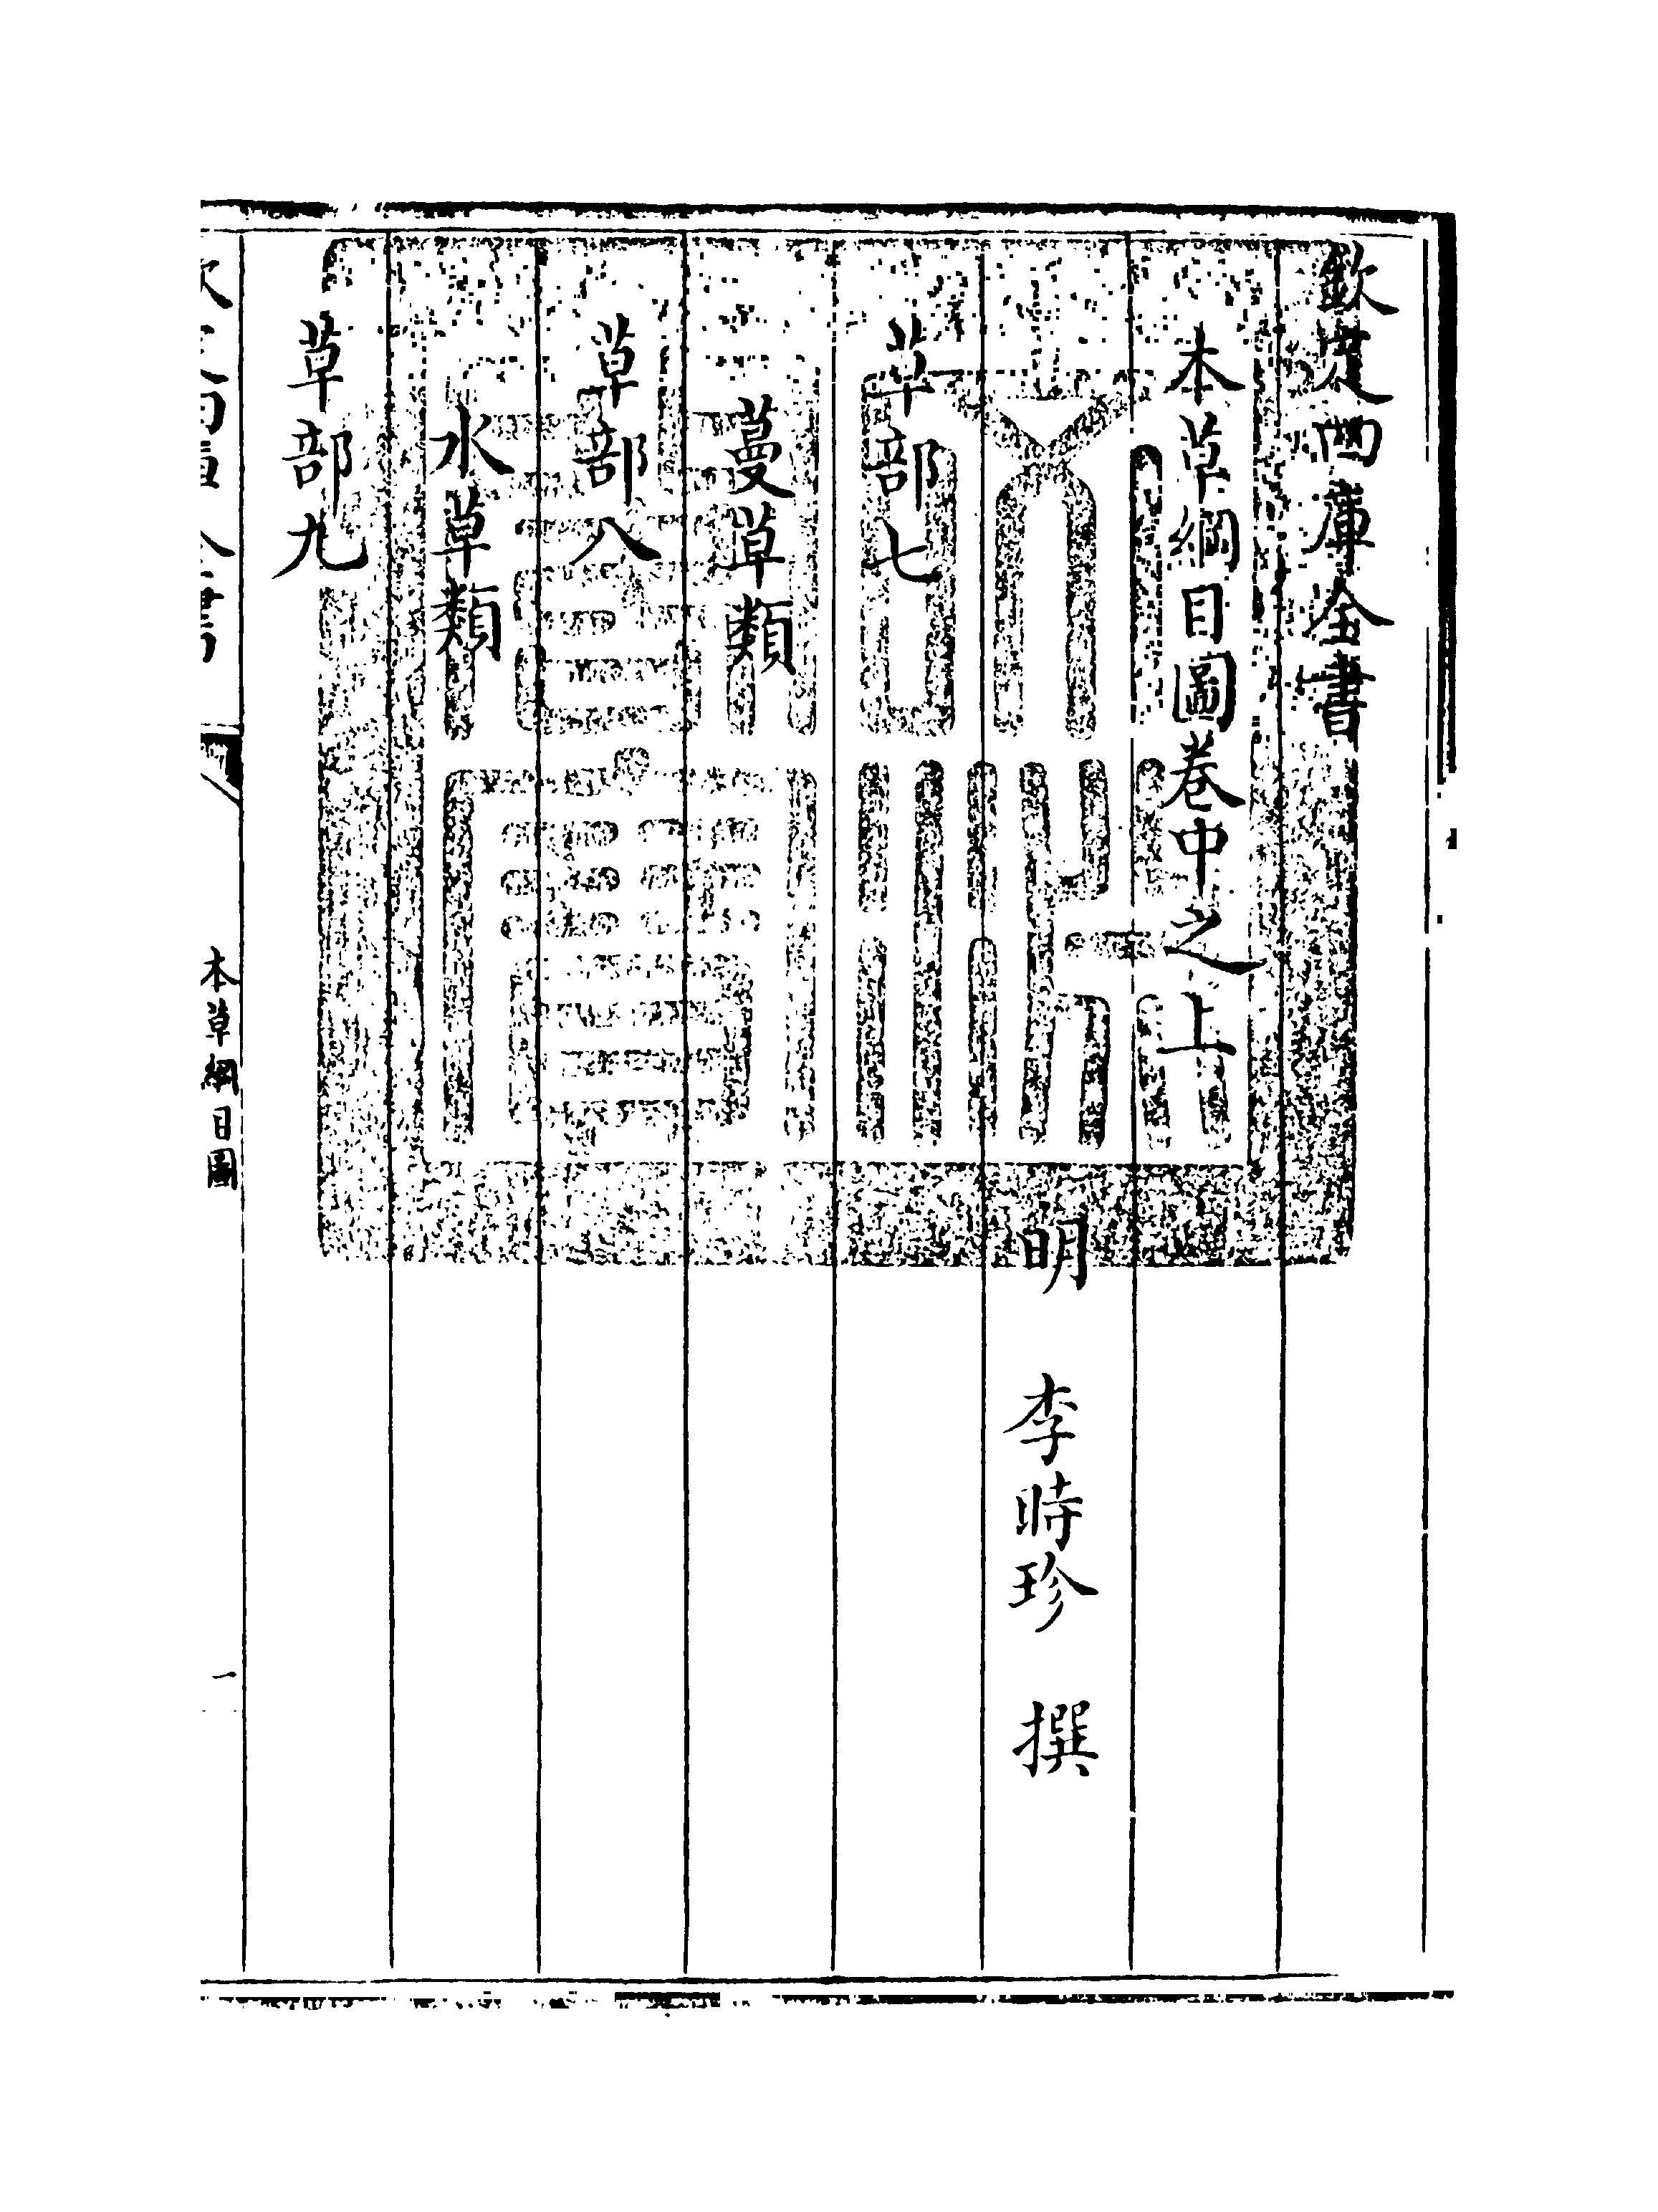 欽定四庫全書
本草綱目圖卷中之上
明 李時珍 撰
草部七
蔓草類
草部八
水草類
草部九
本草綱目圖
一